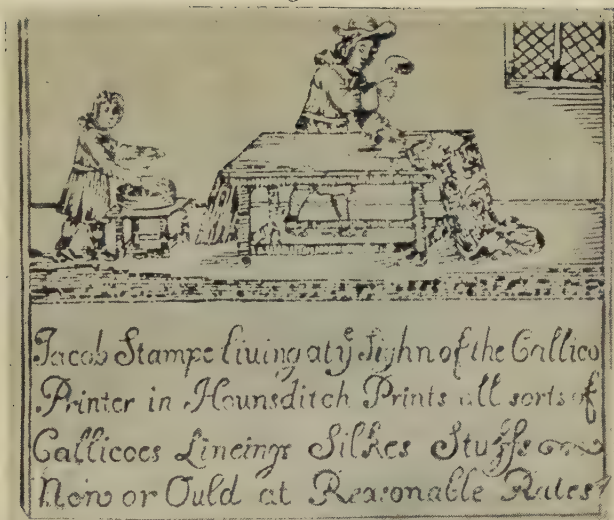 Jacob Stampe living at yͤ sighn of the Callico
Printer in Hounsditch Prints all sorts of
Callicoes Lineings Silkes Stuffs
New or Ould at Reasonable Rates